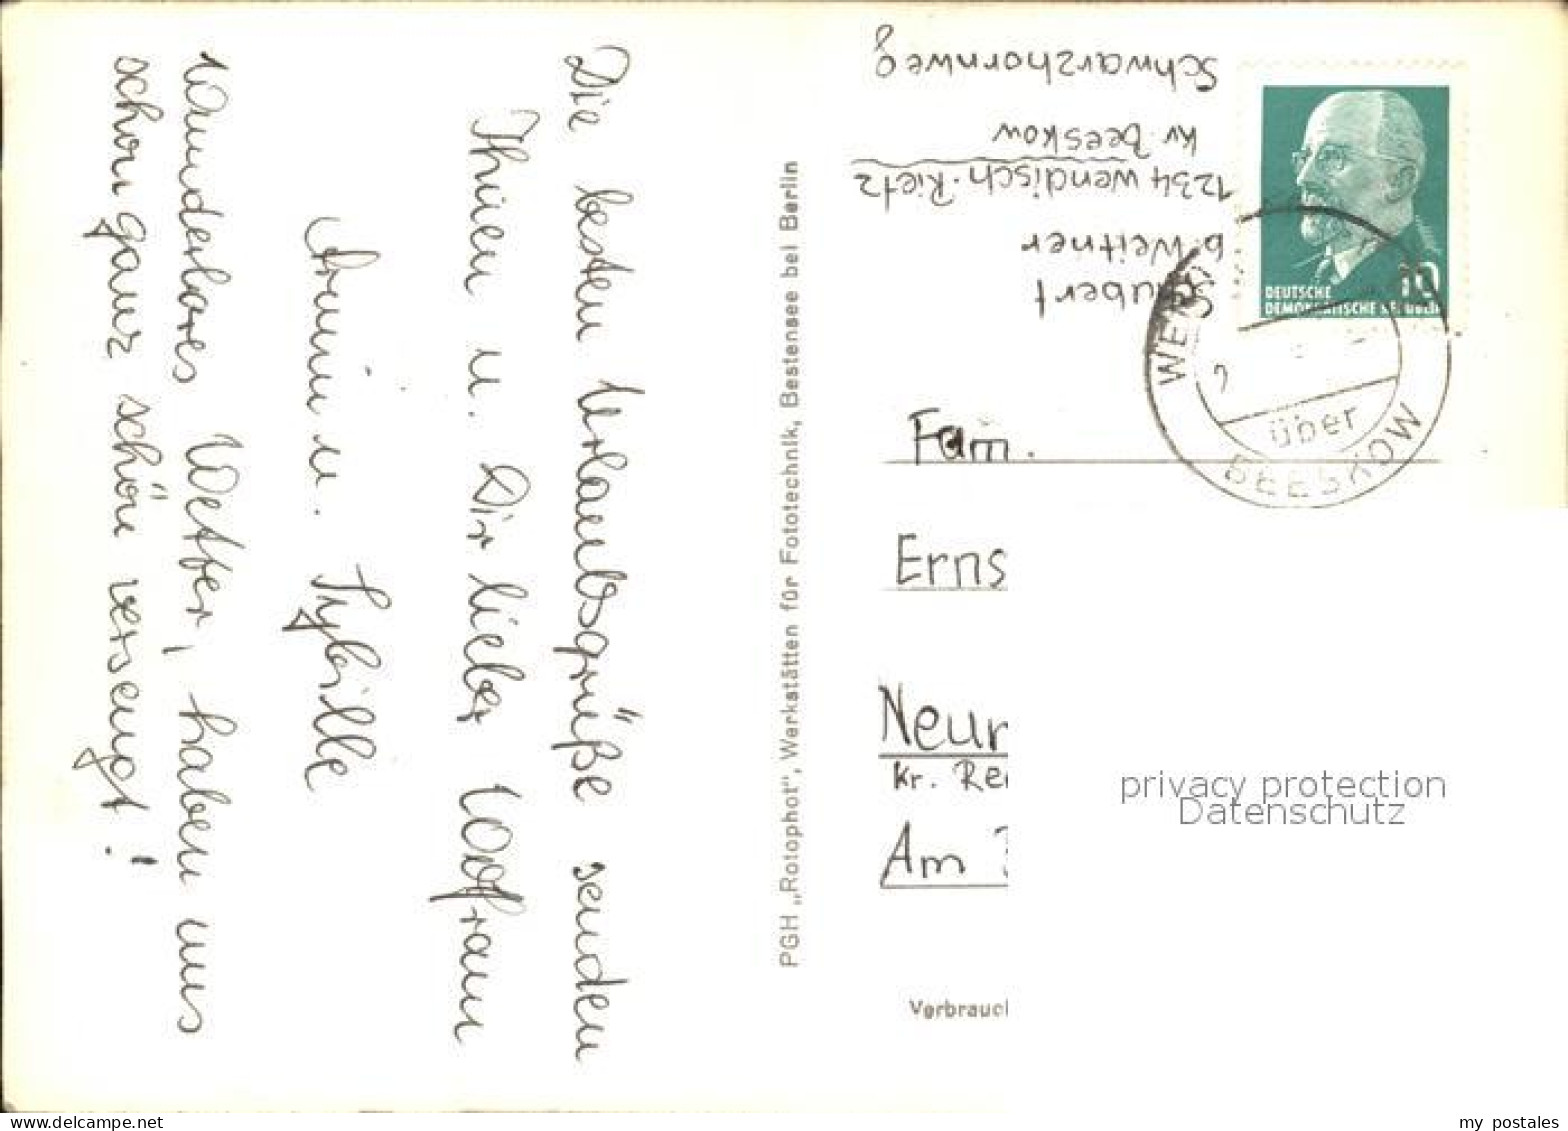 Die besten Urlaubsgrüße senden
Ihnen u. Dir lieber Wolfram
Armin u. Sybille
Wunderbares Wetter, haben uns
schon ganz schön versengt!
PGH „Rotophot", Werkstätten für Fototechnik, Bestensee bei Berlin
Schubert
b. Weitner
1234 Wendisch-Rietz
Kr. Beeskow
Schwarzhornweg
8
10
DEUTSCHE
DEMOKRATISCHE REPUBLIK
WEN
über
BEESKOW
Fam.
Erns
Neur
Kr. Re
Am
Verbrauc
privacy protection
Datenschutz
my postales